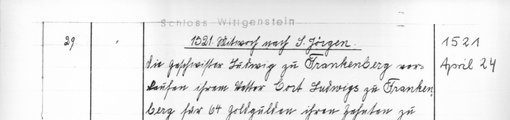 Schloss Wittgenstein
29 1521 Mitwoch nach S. Jörgen. 1521
die Geschwister Ludwig zu Frankenberg ver- April 24
kaufen ihrem Vetter Cort Ludwigs zu Franken
berg für 64 Goldgulden ihren Zehnten zu